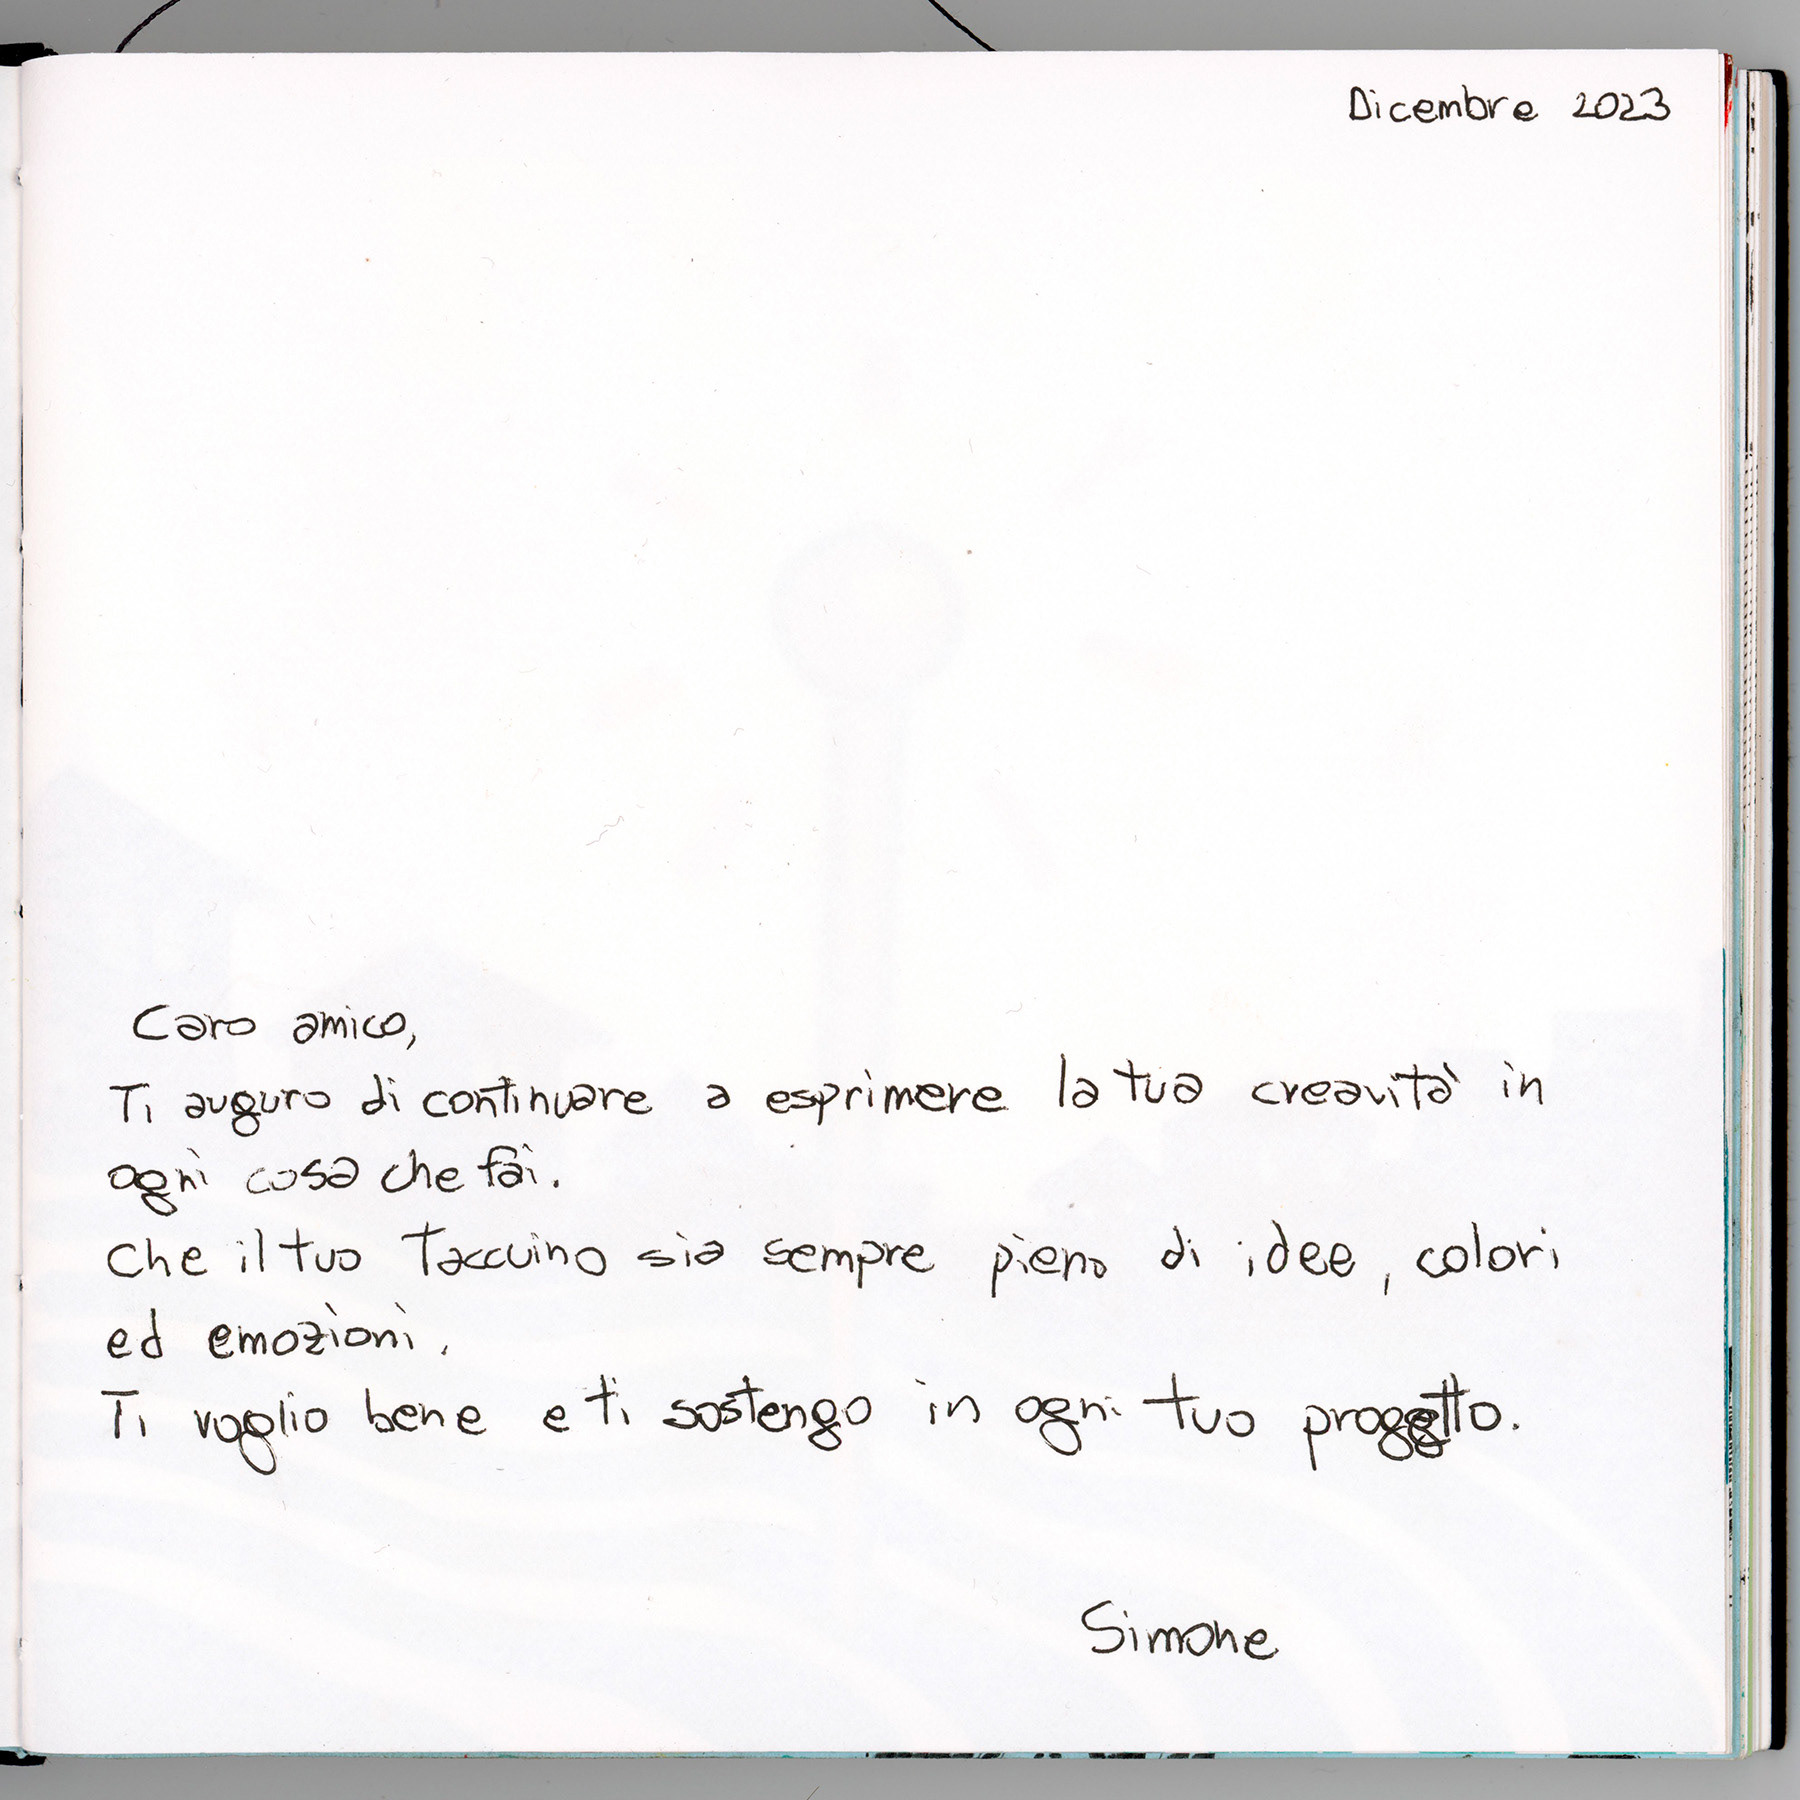 Dicembre 2023
Caro amico,
Ti auguro di continuare a esprimere la tua creavità in
ogni cosa che fai.
Che il tuo Taccuino sia sempre pieno di idee, colori
ed emozioni.
Ti voglio bene e ti sostengo in ogni tuo proggetto.
Simone